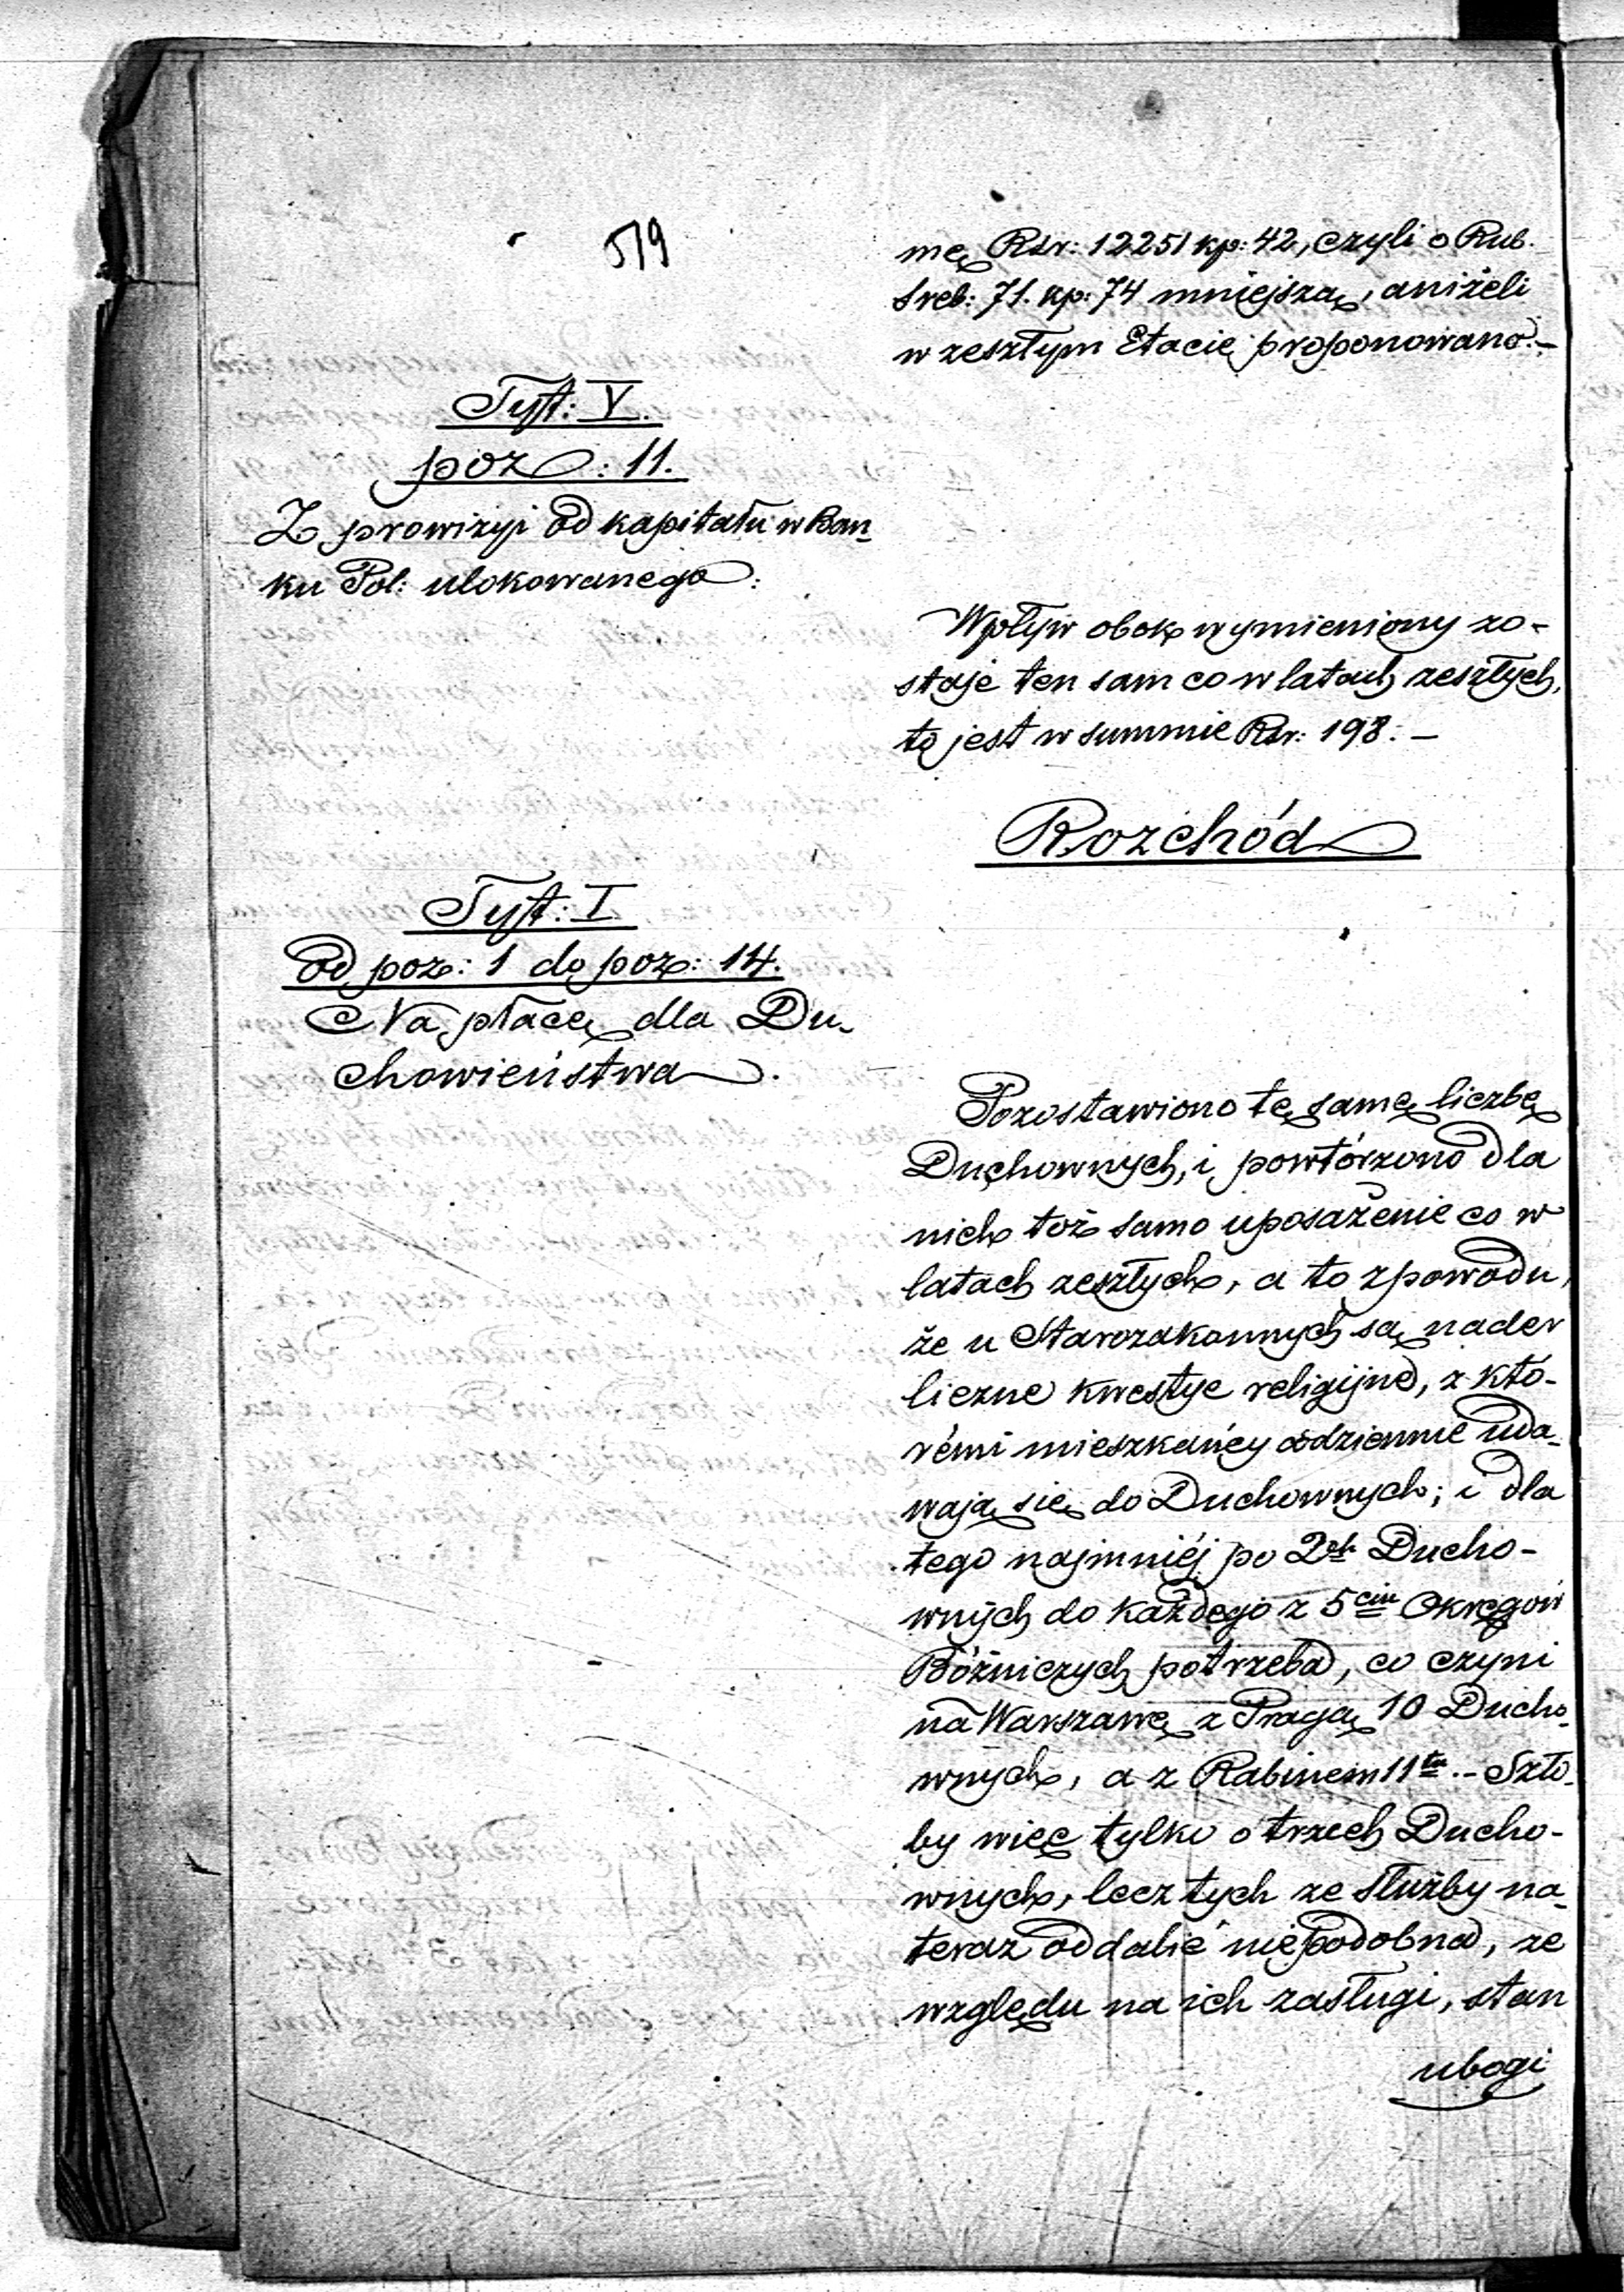 519
mę Rsr: 12251 kp: 42, czyli o Rub.
Sreb: 71. kp: 74 mniejszą, aniżeli
w zeszłym Etacie proponowano.–
Tyt: V.
poz: 11.
Z prowizyi od kapitału w Ban-
ku Pol: ulokowanego:
Wpływ obok wymieniony zo-
staje ten sam co w latach zeszłych,
to jest w summie Rsr: 198.–
Rozchód
Tyt: I
Od poz: 1 do poz: 14.
Na płace dla Du-
chowieństwa.
Pozostawiono tę samę liczbę
Duchownych, i powtórzono dla
nich toż samo uposażenie co w
latach zeszłych, a to z powodu,
że u Starozakonnych są nader
liczne kwestye religijne, z któ-
rémi mieszkańcy codziennie uda-
wają się do Duchownych; i dla
tego najmniéj po 2ch Ducho-
wnych do każdego z 5ciu Okręgów
Bóżniczych potrzeba, co czyni
na Warszawę z Pragą 10 Ducho-
wnych, a z Rabinem 11tu.– Szło-
by więc tylko o trzech Ducho-
wnych, lecz tych ze służby na-
teraz oddalić niepodobna, ze
względu na ich zasługi, stan
ubogi